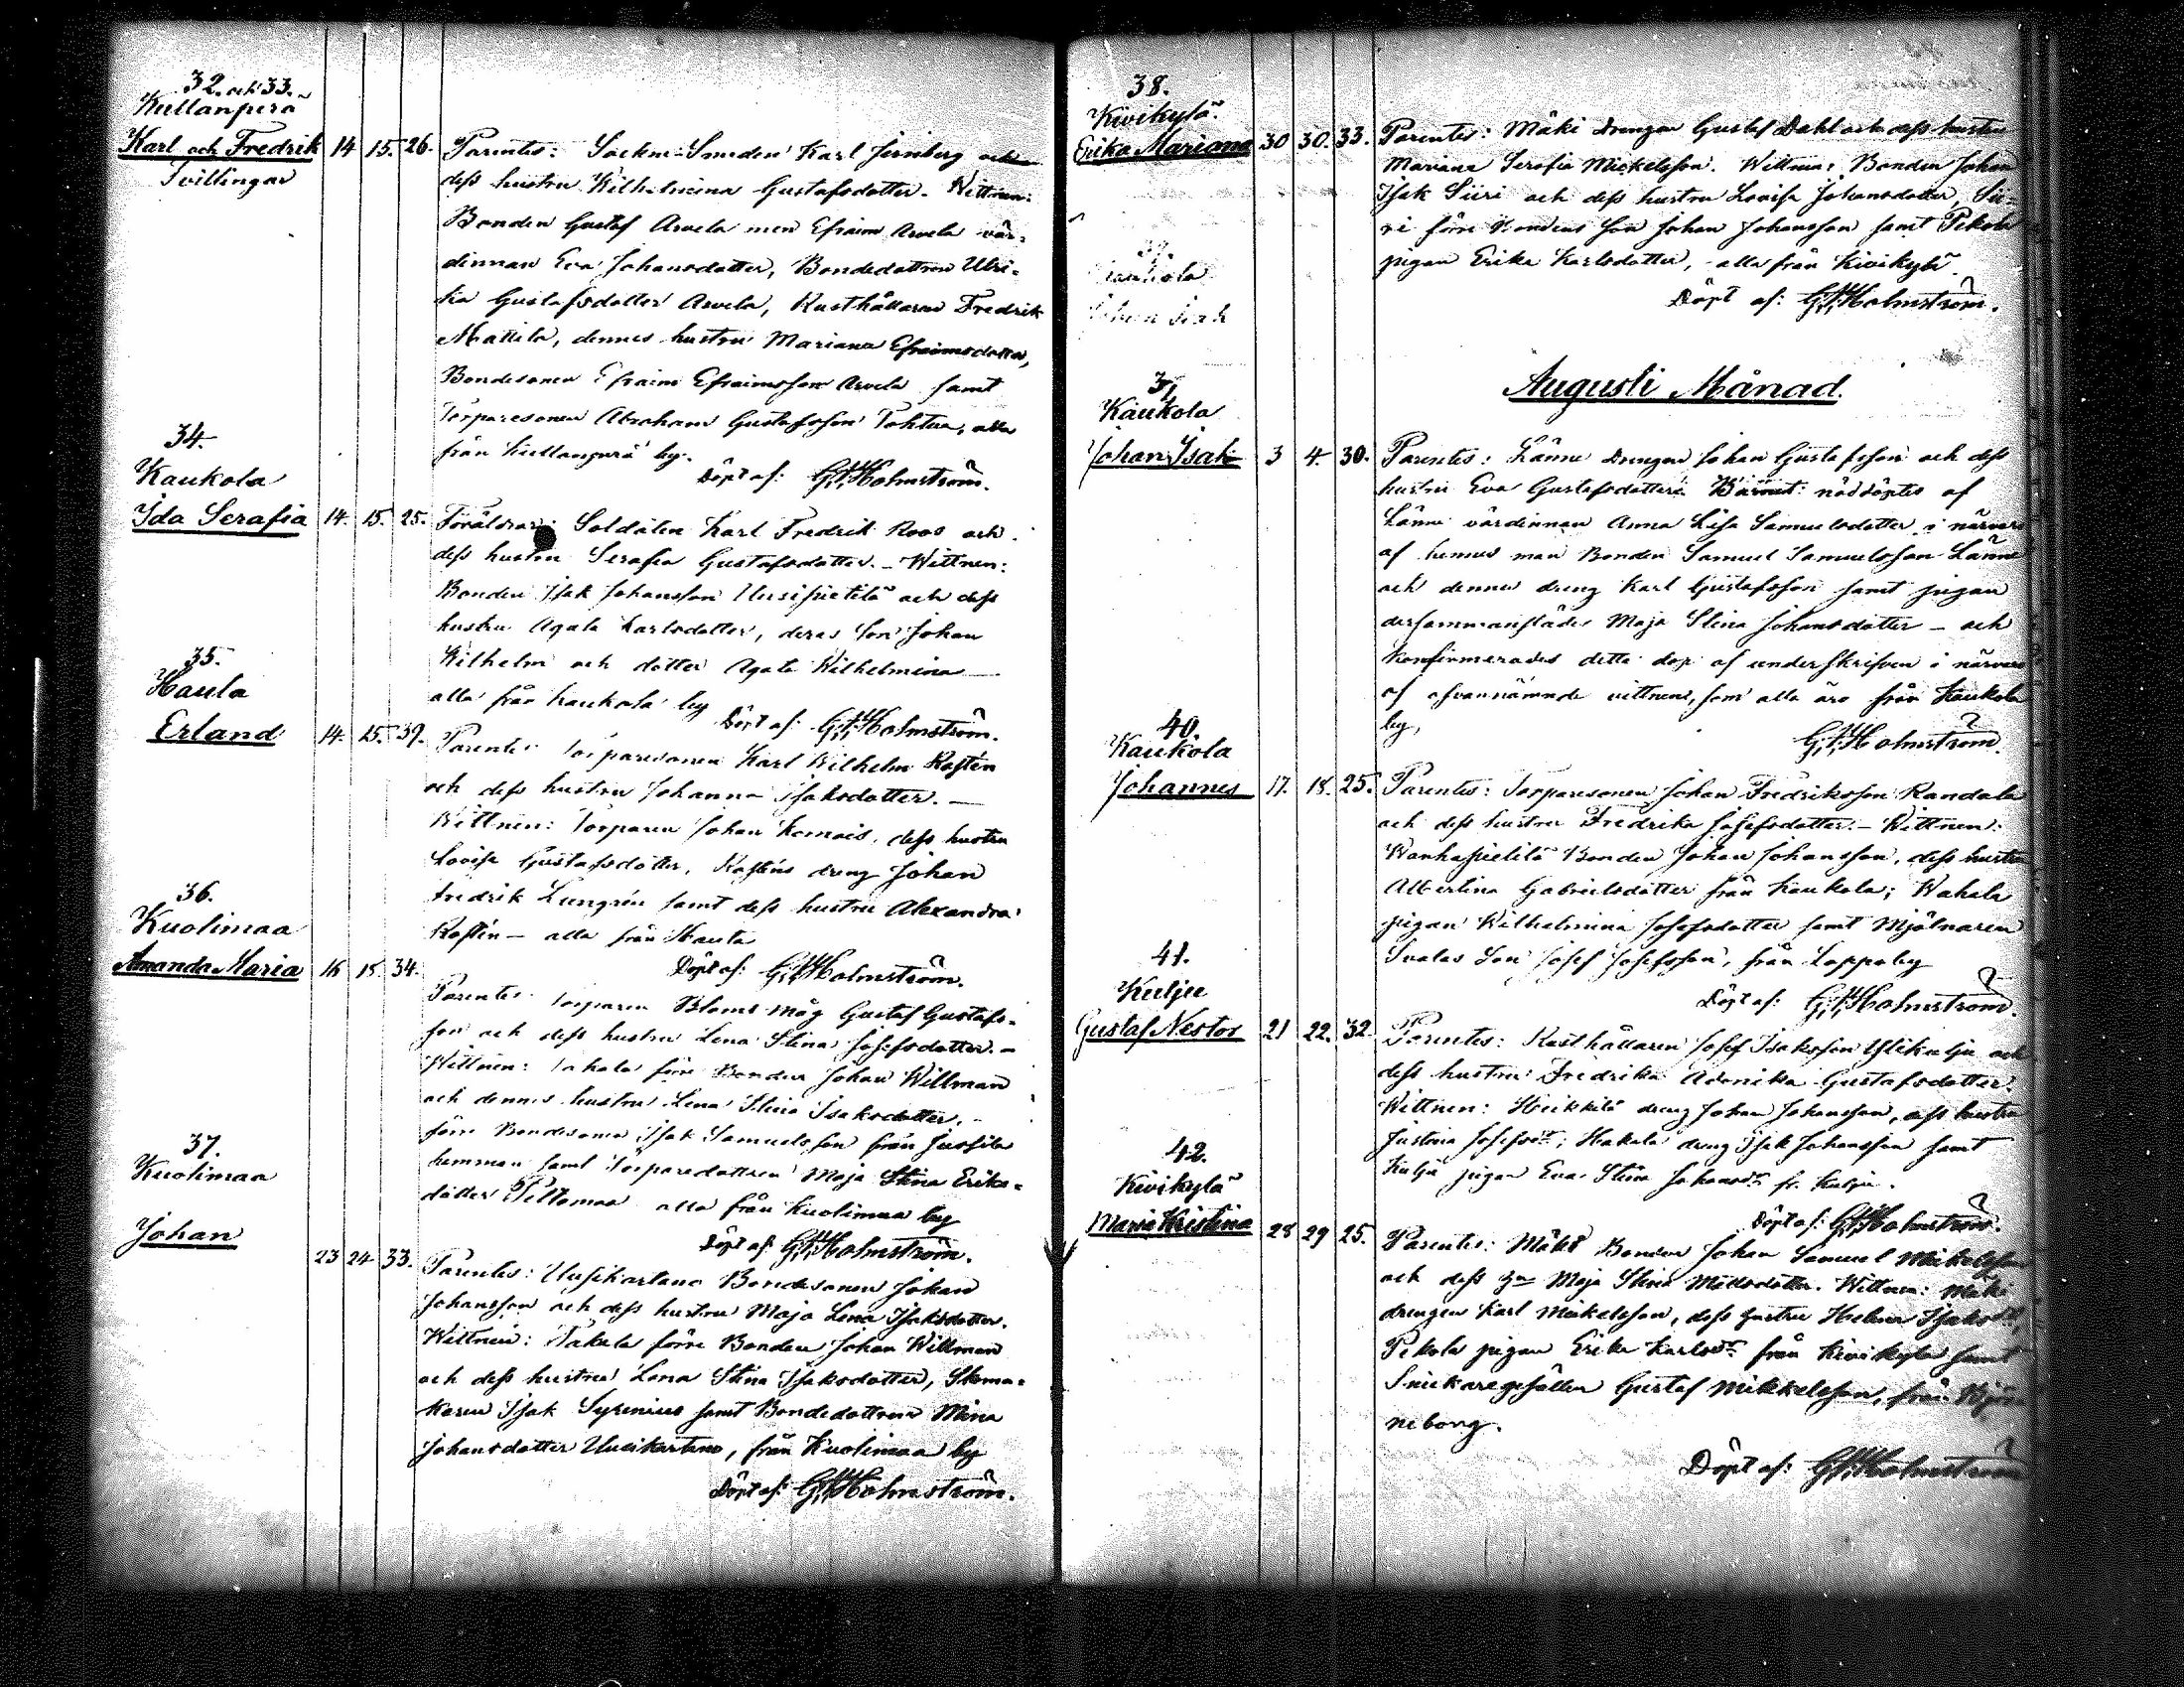 32. och 33.
Kullanperä
Karl och Fredrik 14 15. 26.
Tvillingar
Parentes: Sockne-Smeden Karl Jernberg och
dess hustru Wilhelmina Gustafsdotter. Wittnen:
Bonden Gustaf Arvela men Efraim Arvela vär-
dinnan Eva Johansdotter, Bondedottren Ulri-
ka Gustafsdotter Arvela, Rusthållaren Fredrik
Mattila, dennes hustru Mariana Efraimsdotter,
Bondesonen Efraim Efraimsson Arvela samt
Torparesonen Abraham Gustafsson Tohtua, alla
från Kullanperä by.
Döpt af: G. A. Holmström.
34.
Kaukola
Ida Serafia 14. 15. 25.
Föräldrar: Soldaten Karl Fredrik Roos och
dess hustru Serafia Gustafsdotter. - Wittnen:
Bonden Isak Johansson Uusipietilä och dess
hustru Agata Karlsdotter, deras son Johan
Wilhelm och dotter Agata Wilhelmina
alla från Kaukola by
Döpt af: G. A. Holmström.
35.
Haula
Erland 14. 15. 39.
Parentes Torparesonen Karl Wilhelm Rostén
och dess hustru Johanna Isaksdotter. -
Wittnen: Torparen Johan dess hustru
Lovisa Gustafsdotter, Rosténs dreng Johan
Fredrik Lungrén samt dess hustru Alexandra
Rostén - alla från Haula
Döpt af: G. A. Holmström.
36.
Kuolimaa
Amanda Maria 16 18. 34.
Parentes Torparen Bloms måg Gustaf Gustafs-
son och dess hustru Lena Stina Josefsdotter. -
Wittnen: Takala förre Bonden Johan Willman
och dennes hustru Lena Stina Isaksdotter,
förre Bondesonen Isak Samuelsson från Jussila
hemman samt Torparedottren Maja Stina Eriks-
dotter Peltomaa alla från Kuolimaa by
Döpt af G. A. Holmström.
37.
Kuolimaa
Johan 23 24 33.
Parentes: Uusikartano Bondesonen Johan
Johansson och dess hustru Maja Lena Isaksdotter.
Wittnen: Takala förre Bonden Johan Willman
och dess hustru Lena Stina Isaksdotter, Skoma-
karen Isak Syrenius samt Bondedottren Mina
Johansdotter Uusikartano, från Kuolimaa by
Döpt af: G. A. Holmström.
38.
Kivikylä
Erika Mariana 30 30. 33.
Parentes: Mäki Drengen Gustaf Dahl och dess hustru
Mariana Serafia Mickelsson. Wittnen: Bonden Johan
Isak Siiri och dess hustru Lovisa Johansdotter, Sii-
ri förre Bondens Son Johan Johansson samt Pekola
pigan Erika Karlsdotter, alla från Kivikylä
Döpt af: G. A. Holmström.
Augusti Månad.
39.
Kaukola
Johan Isak 3 4. 30.
Parentes: Länne Drengen Johan Gustafsson och dess
hustru Eva Gustafsdotter. Barnet nöddöptes af
Länne värdinnan Anna Lisa Samuelsdotter i närvaro
af hennes man Bonden Samuel Samuelsson Länne
och dennes dreng Karl Gustafsson samt pigan
dersammanstädes Maja Stina Johansdotter - och
konfirmerades detta dop af underskrifven i närvaro
af ofvannämnde vittnen, som alla äro från Kaukola
by,
G. A. Holmström.
40.
Kaukola
Johannes 17. 18. 25.
Parentes: Torparesonen Johan Fredriksson Randala
och dess hustru Fredrika Josefsdotter. - Wittnen:
Wanhapietilä Bonden Johan Johansson, dess hustru
Albertina Gabrielsdotter från Kaukola; Wahala
pigan Wilhelmina Josefsdotter samt Mjölnaren
Svalas Son Josef Josefsson, från Loppoby
Döpt af: G. A. Holmström.
41.
Kulju
Gustaf Nestor 21 22. 32.
Parentes: Rusthållaren Josef Isaksson Ylikulju och
dess hustru Fredrika Adonika Gustafsdotter.
Wittnen: Heikkilä dreng Johan Johansson, dess hustru
Justina Josefsdr; Hakala dreng Isak Johansson samt
Kulju pigan Eva Stina Johansdr fr. Kulju.
Döpt af: G. A. Holmström.
42.
Kivikylä
Maria Kristina 28 29 25.
Parentes: Mäki Bonden Johan Samuel Mickelsson
och dess Maja Stina Mattsdotter. Wittnen: Mäki
drengen Karl Mickelsson, dess hustru Helena Isaksdr,
Pekola pigan Erika Karlsdr från Kivikylä samt
Snickaregesällen Gustaf Mikkelsson, från Björ-
neborg.
Döpt af: G. A. Holmström